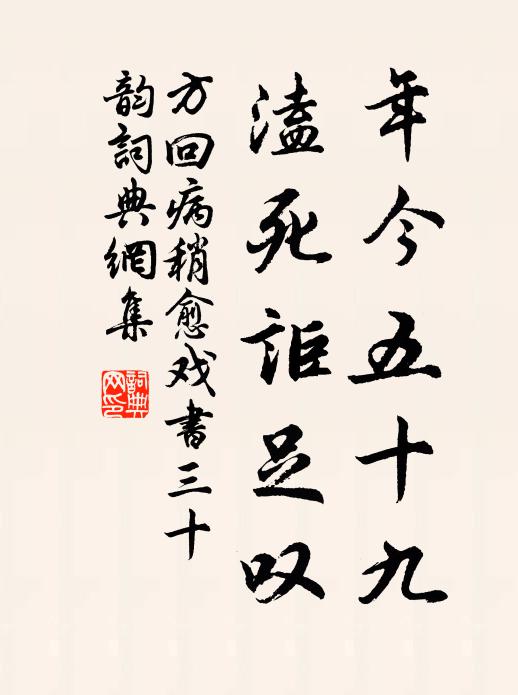 年今五十九
溘死詎足叹
方回病稍愈戏書三十
韵詞典網集
詞典
网印